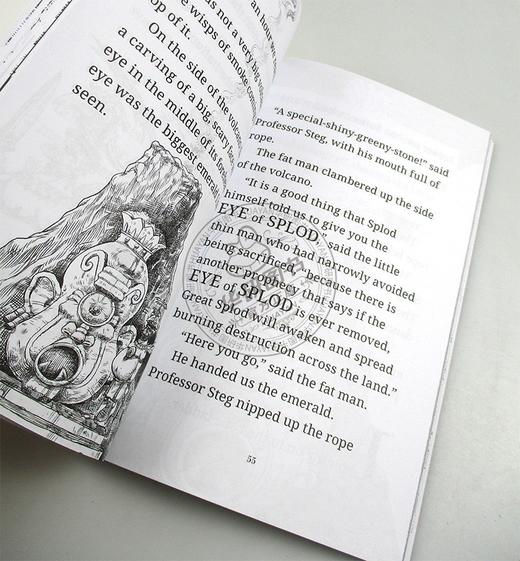 an hour
was not a very big
top of it.
wisps of smoke
On the side of the volcano
a carving of a big, scary
eye in the middle of its
eye was the biggest emerald
seen.
“A special-shiny-greeny-stone!” said
Professor Steg, with his mouth full of
rope.
The fat man clambered up the side
of the volcano.
“It is a good thing that Splod
himself told us to give you the
EYE of SPLOD,” said the little
thin man who had narrowly avoided
being sacrificed, “because there is
another prophecy that says if the
EYE of SPLOD is ever removed,
Great Splod will awaken and spread
burning destruction across the land.”
“Here you go,” said the fat man.
He handed us the emerald.
Professor Steg nipped up the rope
55